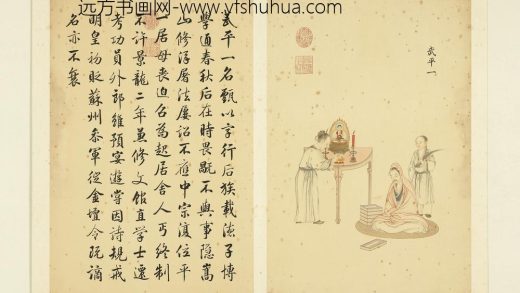 远方书画网-www.yfshuhua.com
武平一名甄以字行后族載德子博
學通春秋后在時畏禍不與事隱嵩
山修浮屠法屢詔不應中宗復位平
一居母喪迫召為起居舍人丐終制
不許景龍二年兼修文館直學士遷
考功員外郎雖預宴遊嘗因詩規戒
明皇初貶蘇州參軍徙金壇令既謫
名亦不衰
武平一